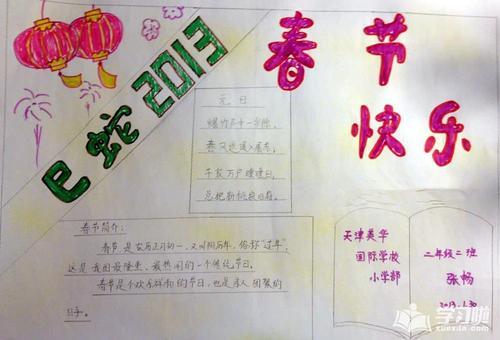 巳蛇2013
春节
快乐
元日
爆竹声中一岁除,
春风送暖入屠苏。
千家万户曈曈日,
总把新桃换旧符。
春节简介:
春节,是农历正月初一,又叫阴历年,俗称"过年",
这是我国最隆重、最热闹的一个传统节日。
春节是个欢乐祥和的节日,也是亲人团聚的
日子。
天津英华
国际学校
小学部
二年级二班
张畅
2013.1.30
学习啦
xuexila.com